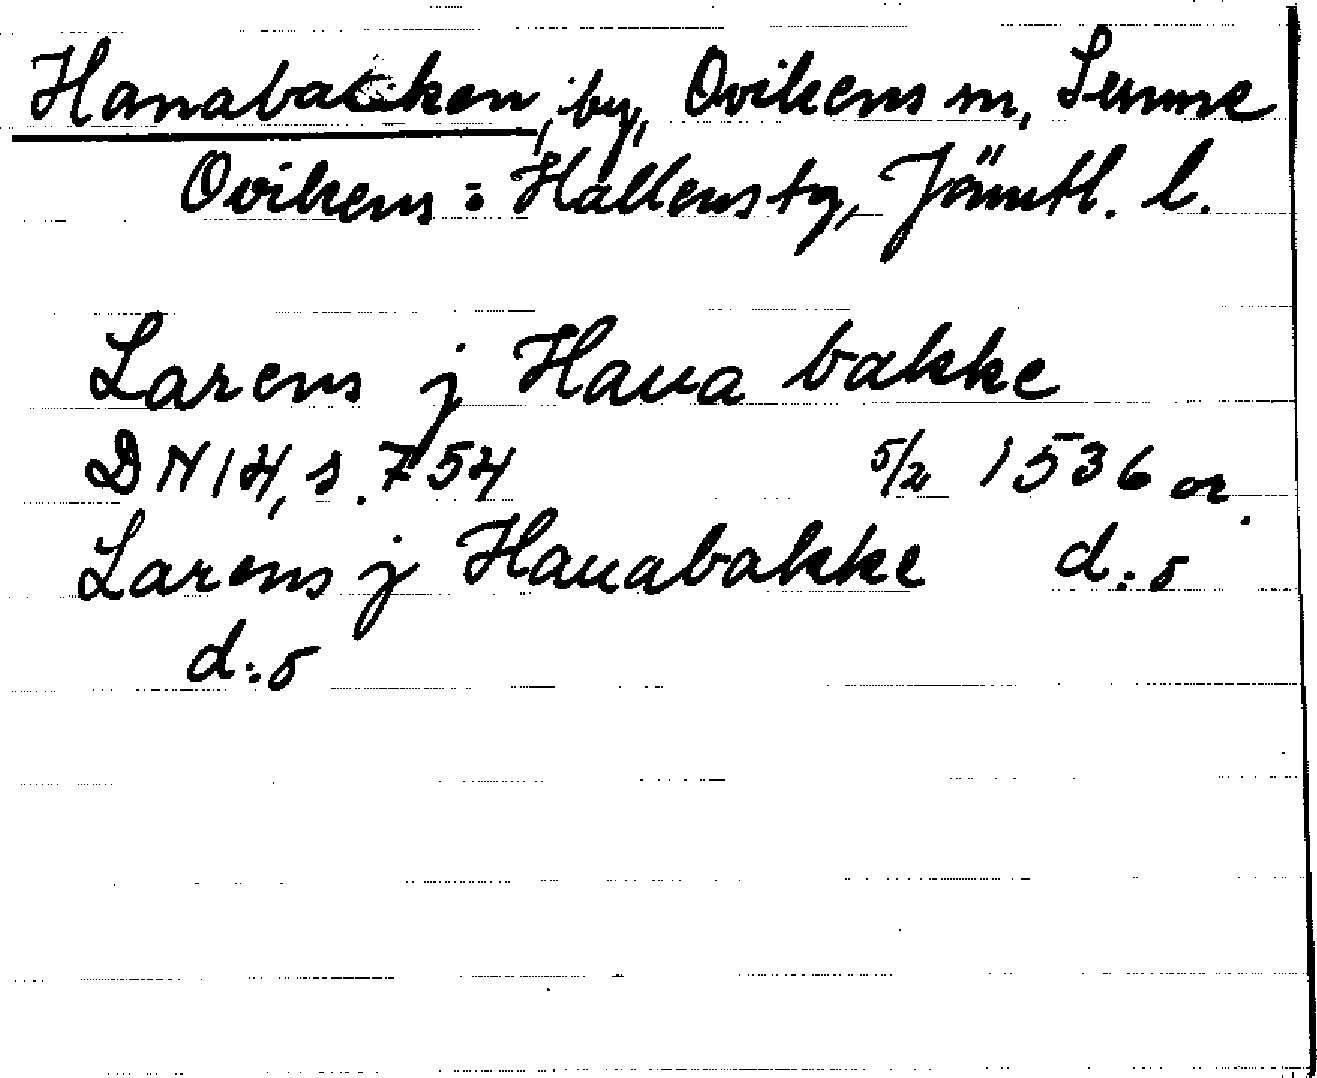 Hanabacken, by, Ovikens sn, Sunne
Ovikens o Hallens tg, Jämtl. l.
Larens j Hana bakke
DN 14, s. 754 5/2 1536 or.
Larens j Hanabakke d:o
d:o